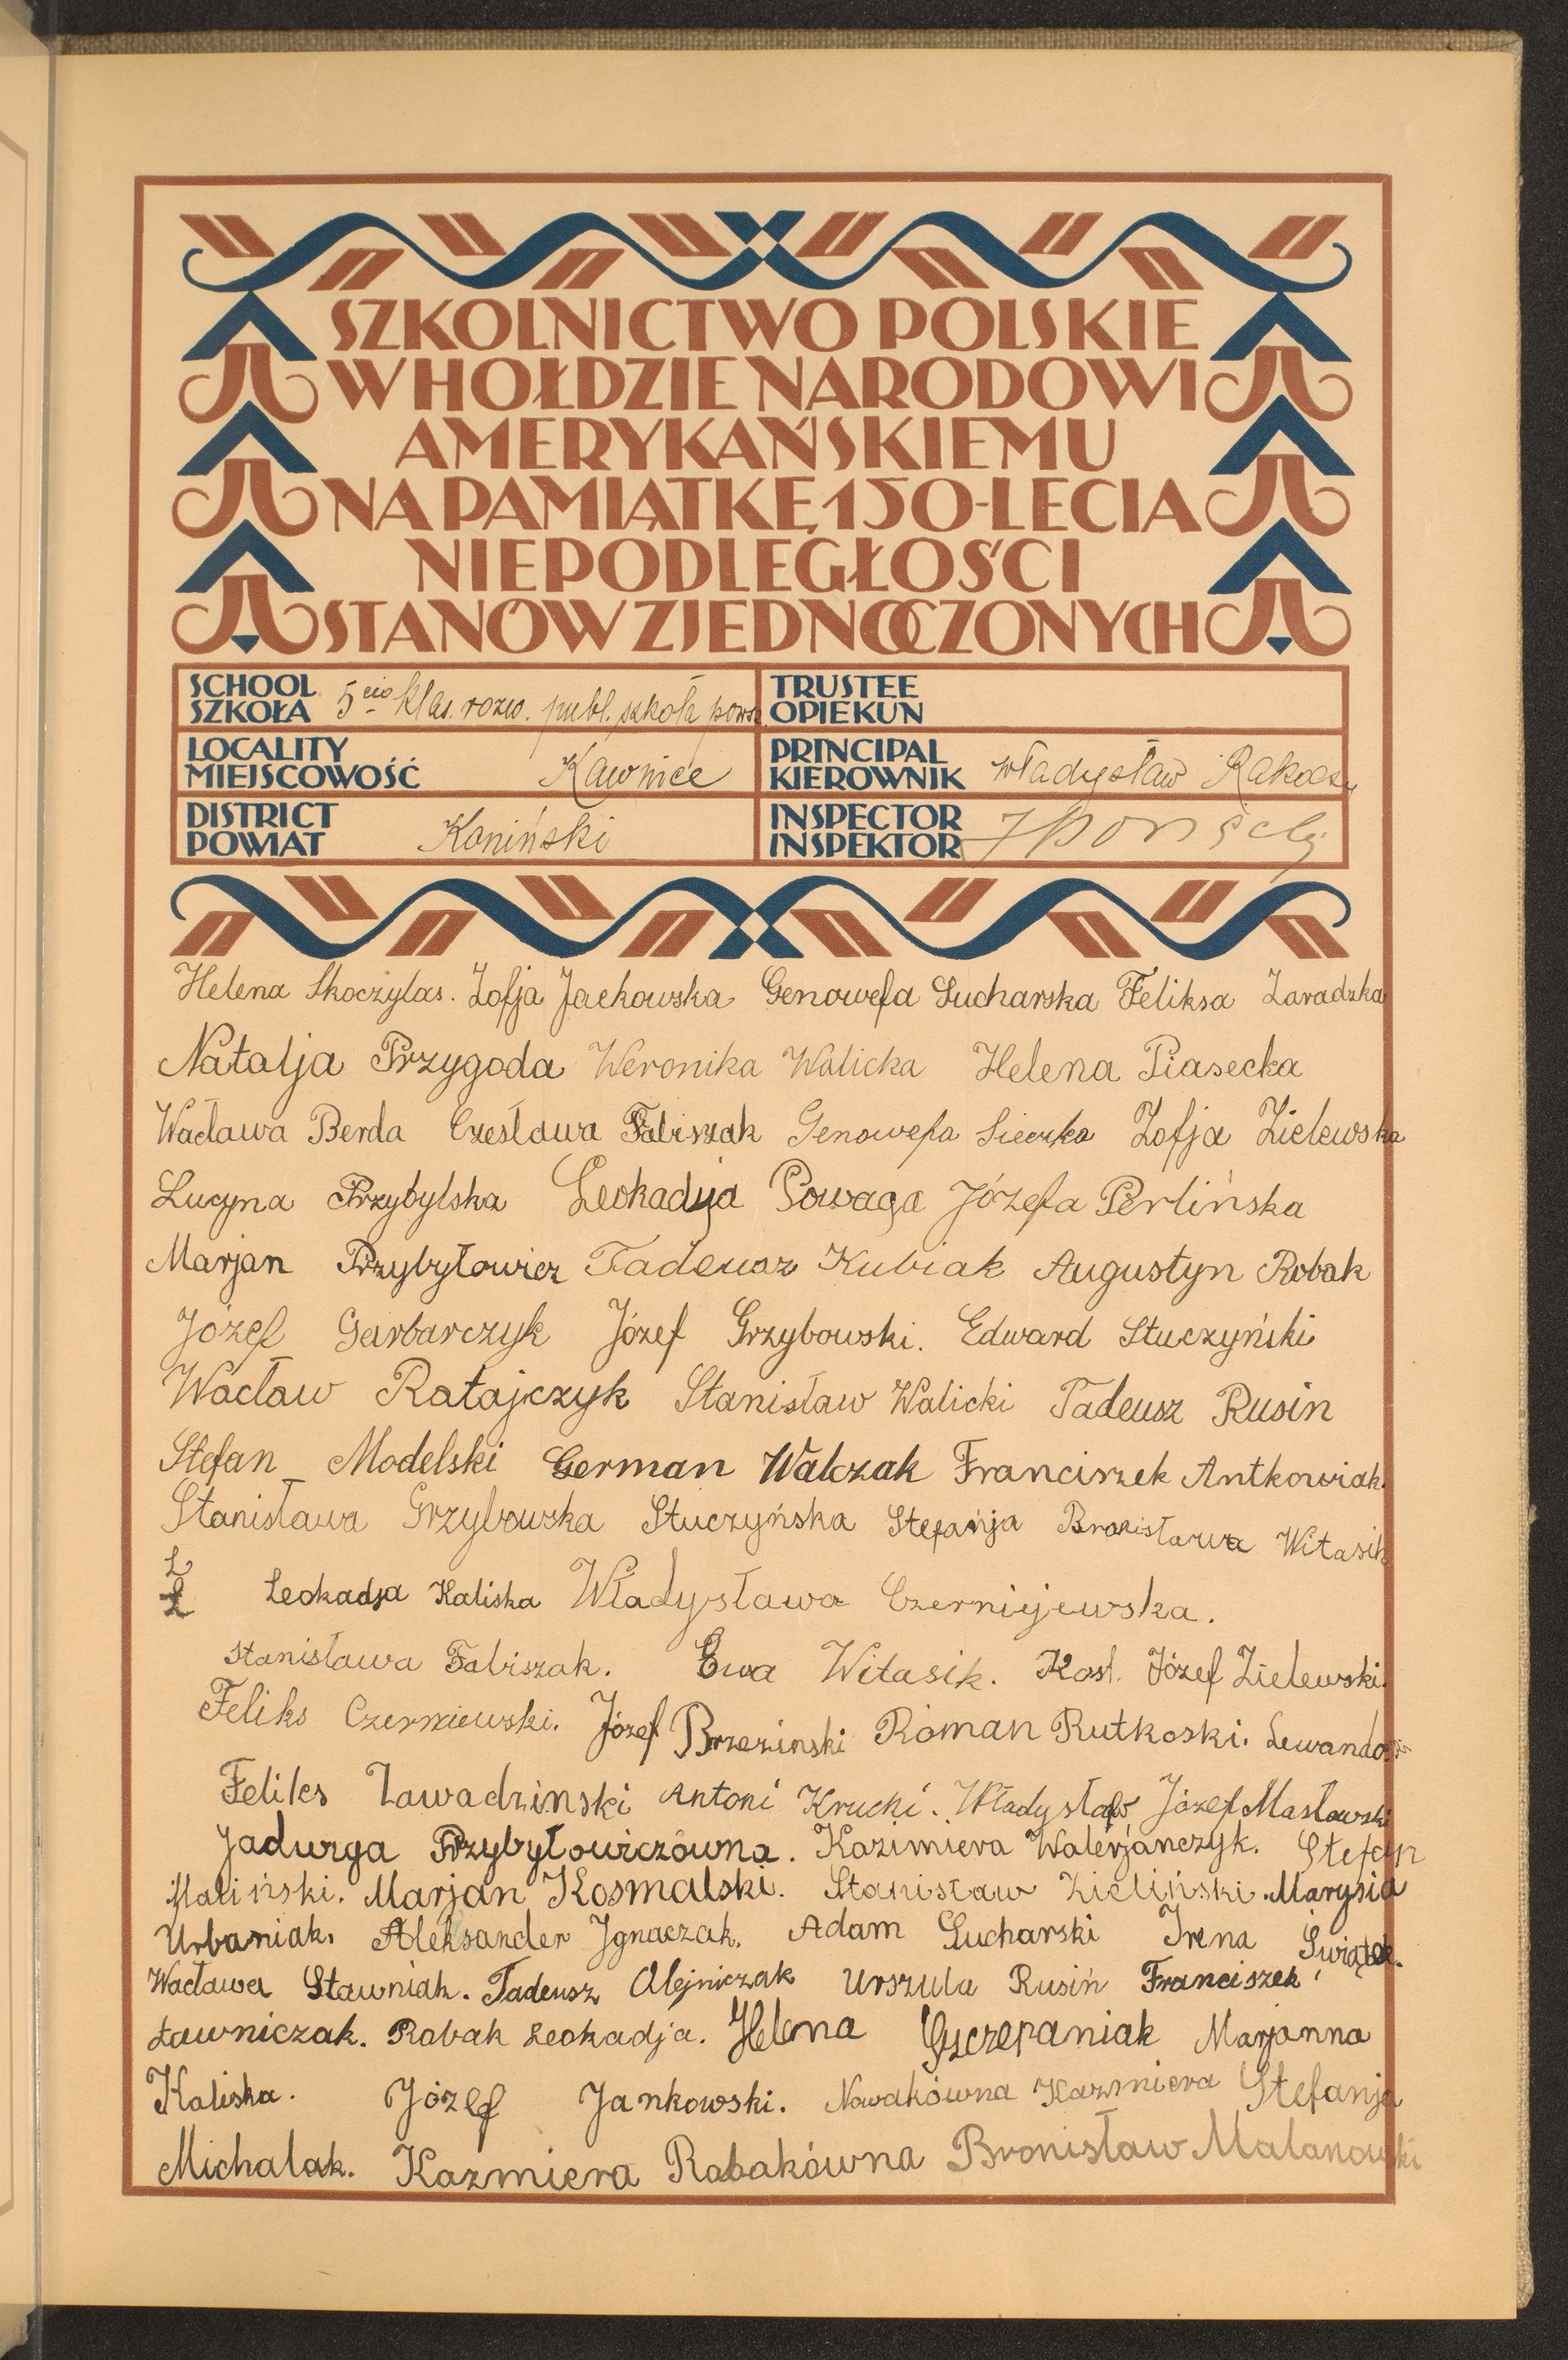 SZKOLNICTWO POLSKIE
W HOŁDZIE NARODOWI
AMERYKAŃSKIEMU
NA PAMIĄTKĘ 150-LECIA
NIEPODLEGŁOŚCI
STANÓW ZJEDNOCZONYCH
SCHOOL
SZKOŁA 5cio klas. rozw. publ. szkoła powsz.
TRUSTEE
OPIEKUN
LOCALITY
MIEJSCOWOŚĆ Kawnice
PRINCIPAL
KIEROWNIK Władysław Rakoczy
DISTRICT
POWIAT Koniński
INSPECTOR
INSPEKTOR
Helena Skoczylas. Zofja Jackowska Genowefa Sucharska Feliksa Zaradzka
Natalja Przygoda Weronika Walicka Helena Piasecka
Wacława Berda Czesława Fabiszak Genowefa Sieczko Zofja Zielewska
Lucyna Przybylska Leokadija Powaga Józefa Perlińska
Marjan Przybyłowicz Tadeusz Kubiak Augustyn Robak
Józef Garbarczyk Józef Grzybowski. Edward Stuczyński
Wacław Ratajczyk Stanisław Walicki Tadeusz Rusin
Stefan Modelski German Walczak Franciszek Antkowiak.
Stanisława Grzybowska Stuczyńska Stefańja Bronisława Witasik
L
Ł Leokadja Kaliska Władysława Czernijewska.
Stanisława Fabiszak. Ewa Witasik. Kost. Józef Zielewski.
Feliks Czerniewski. Józef Brzezinski Roman Rutkoski. Lewando
Feliks Zawadzinski Antoni Krucki. Władysław Józef Masłowski
Jadwiga Przybyłowiczówna. Kazimiera Walerjańczyk. Stefan
Maliński. Marjan Kosmalski. Stanisław Zieliński. Marysia
Urbaniak. Aleksander Ignaczak. Adam Sucharski Irena Świątek.
Wacława Stawniak. Tadeusz Olejniczak Urszula Rusiń Franciszek
Ławniczak. Robak Leokadja. Helena Szczepaniak Marjanna
Kaliska. Józef Jankowski. Nowakówna Kazmiera Stefanja
Michalak. Kazmiera Robakówna Bronisław Malanowski